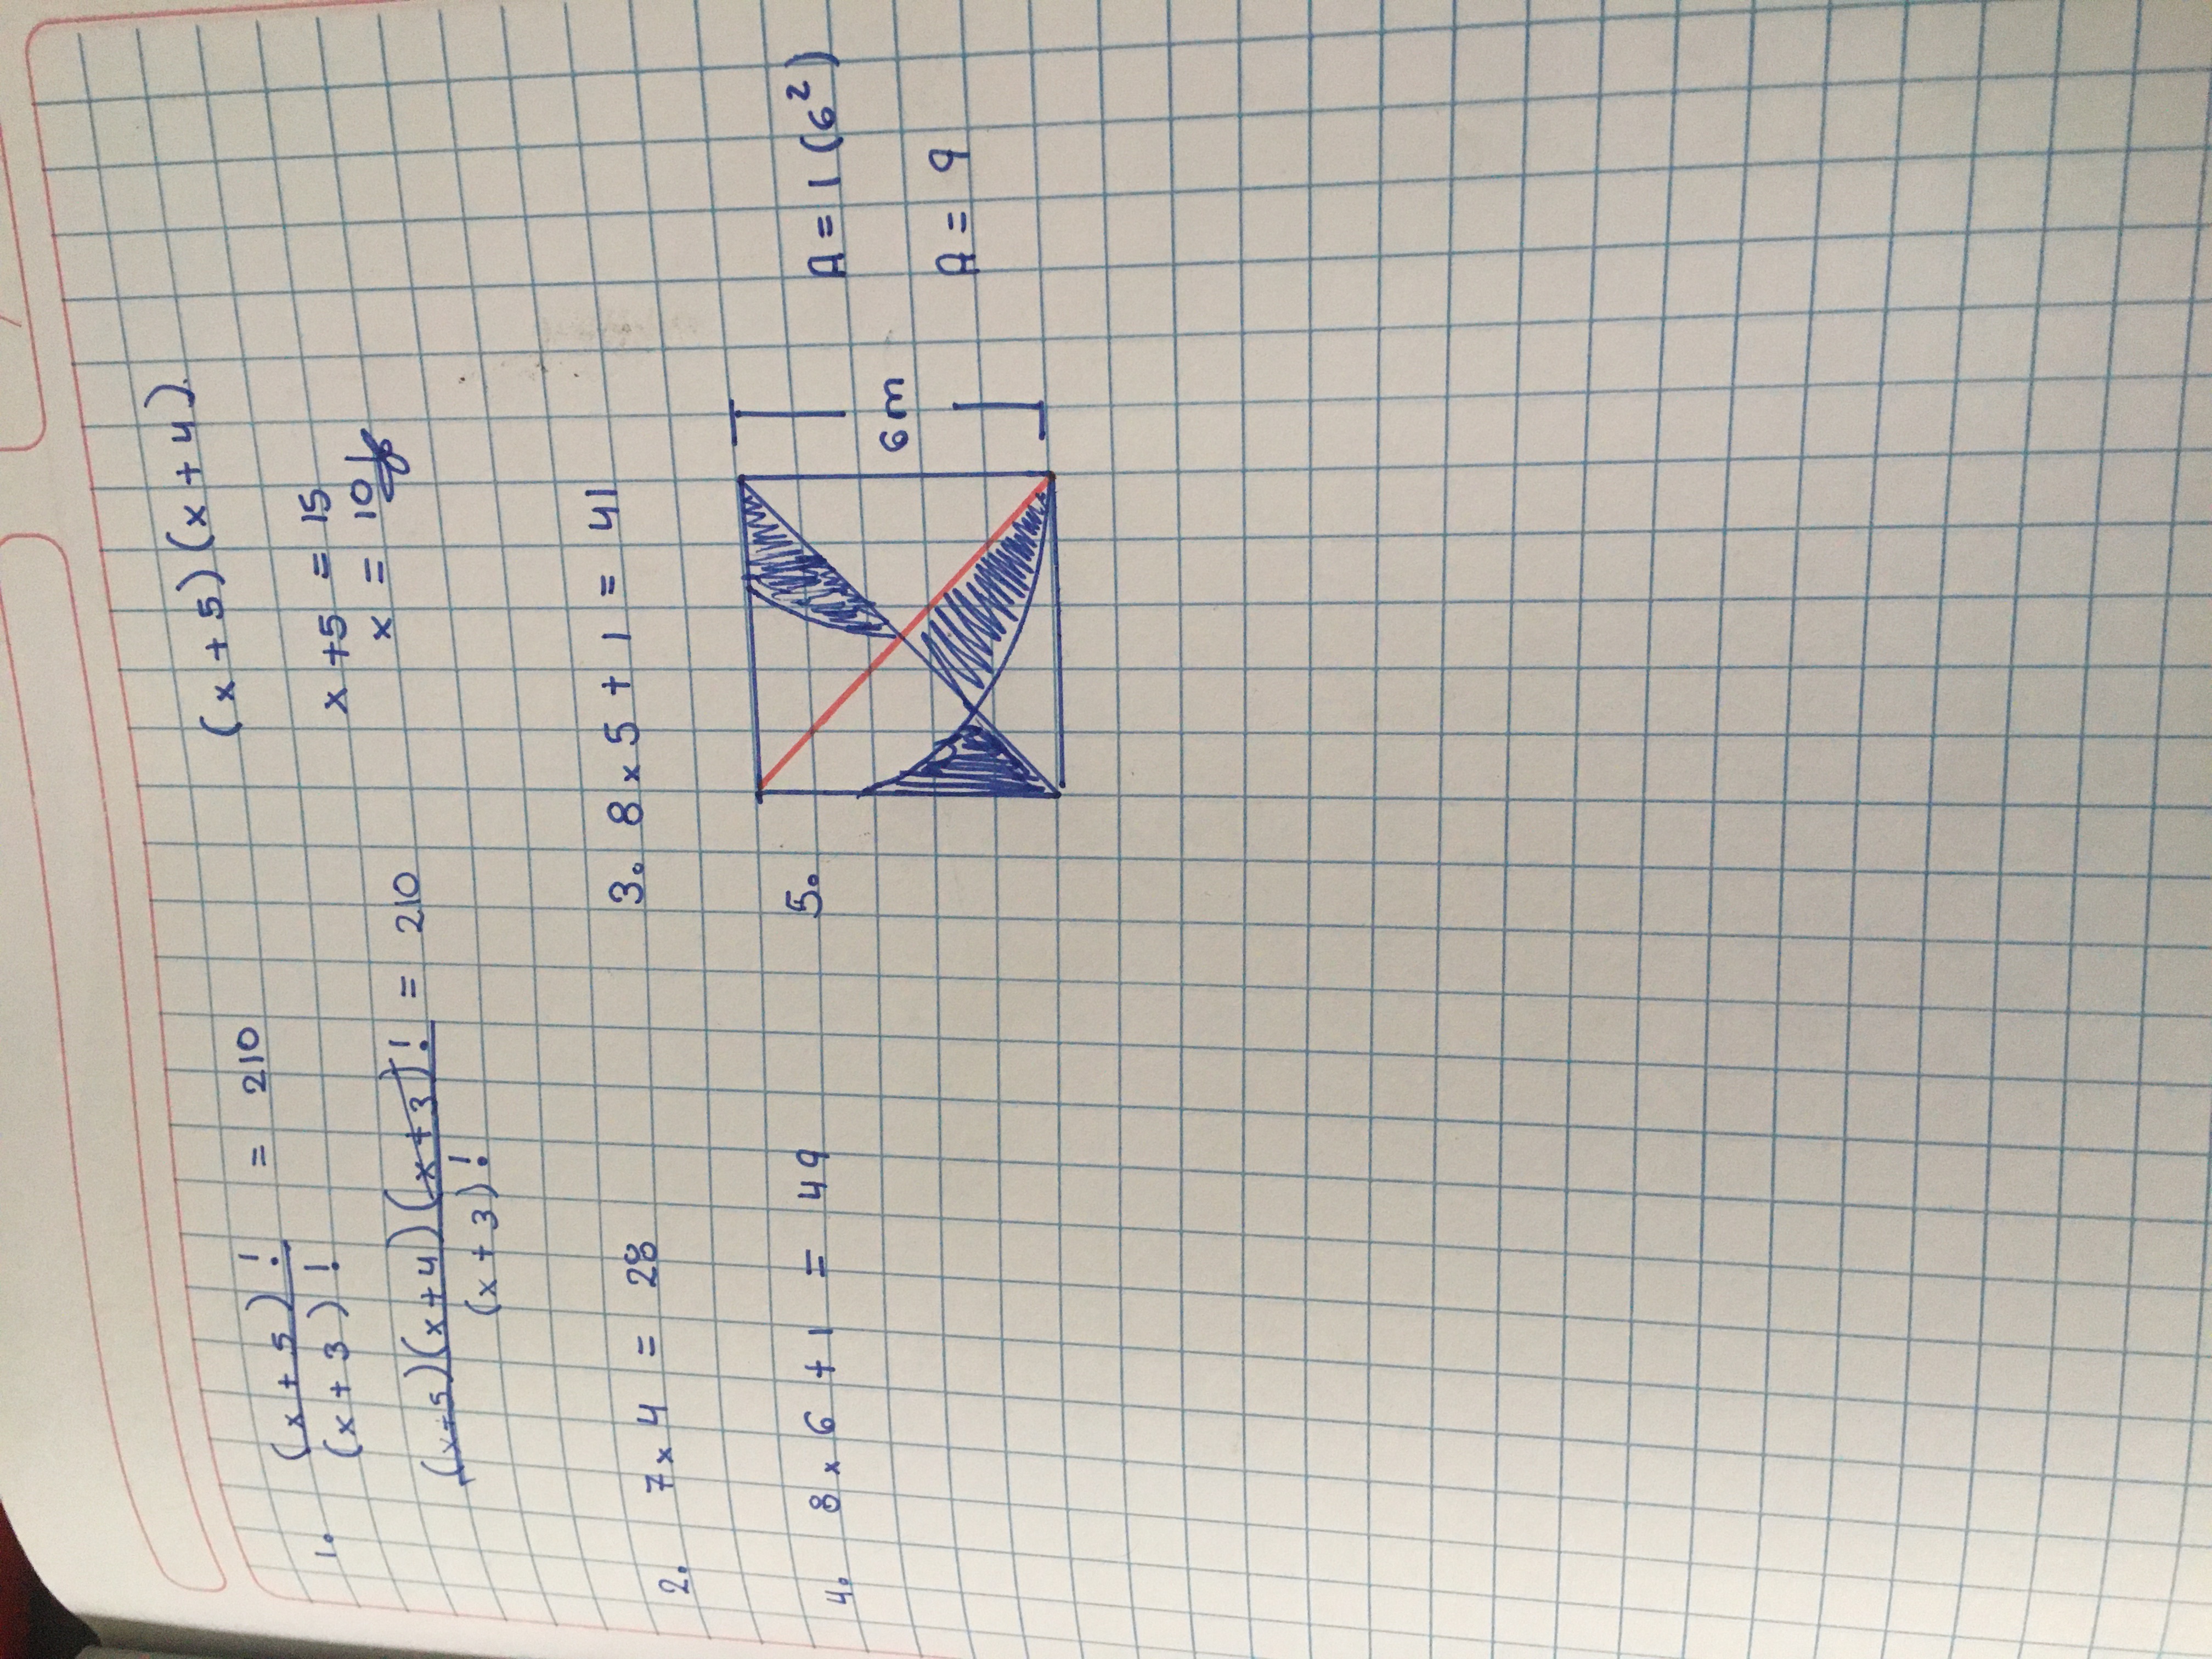 1. (x + 5)! / (x + 3)! = 210
(x+5)(x+4)(x+3)! / (x+3)! = 210
(x + 5)(x + 4)
x + 5 = 15
x = 10
2. 7 x 4 = 28
3. 8 x 5 + 1 = 41
4. 8 x 6 + 1 = 49
5.
6m
A = 1 (6²)
A = 9